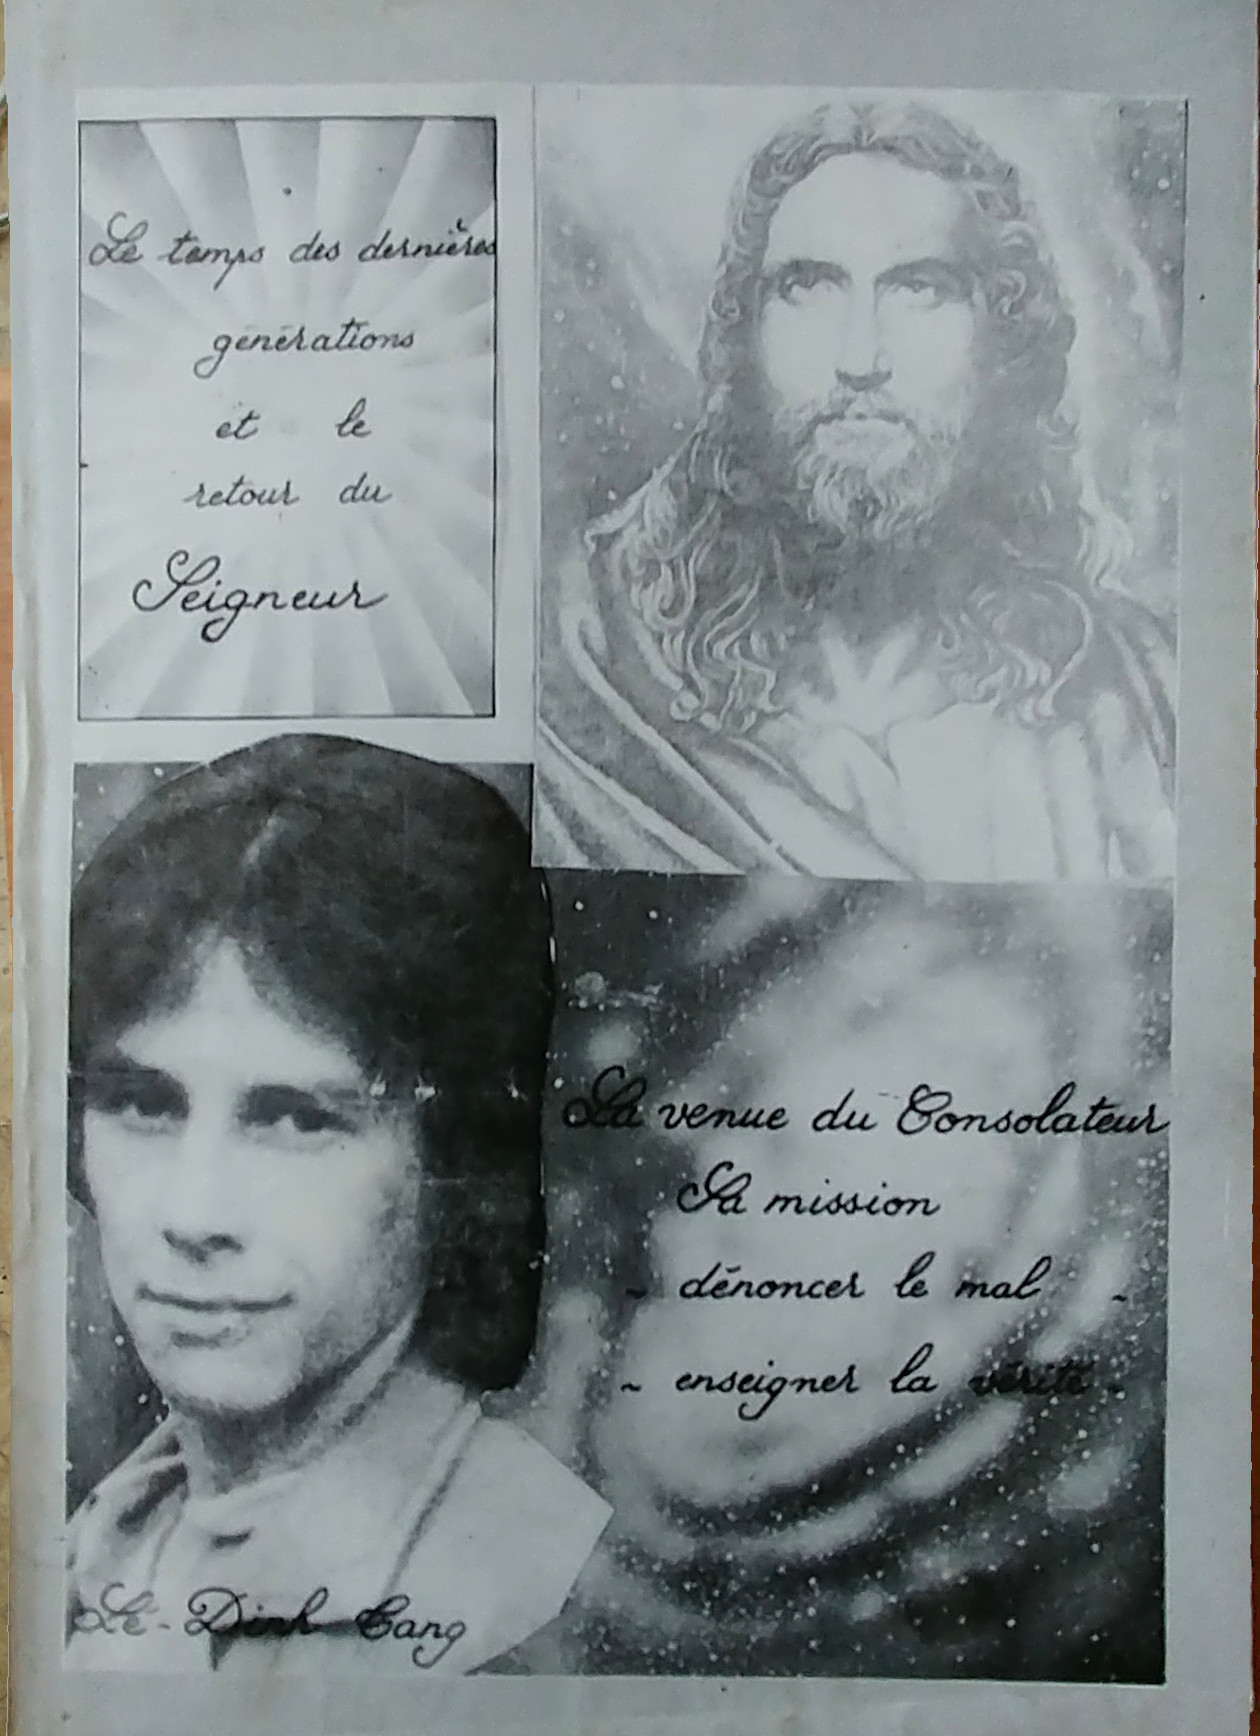 Le temps des dernières
générations
et le
retour du
Seigneur
La venue du Consolateur
Sa mission
~ dénoncer le mal ~
~ enseigner la vérité ~
Lê-Dinh Cang